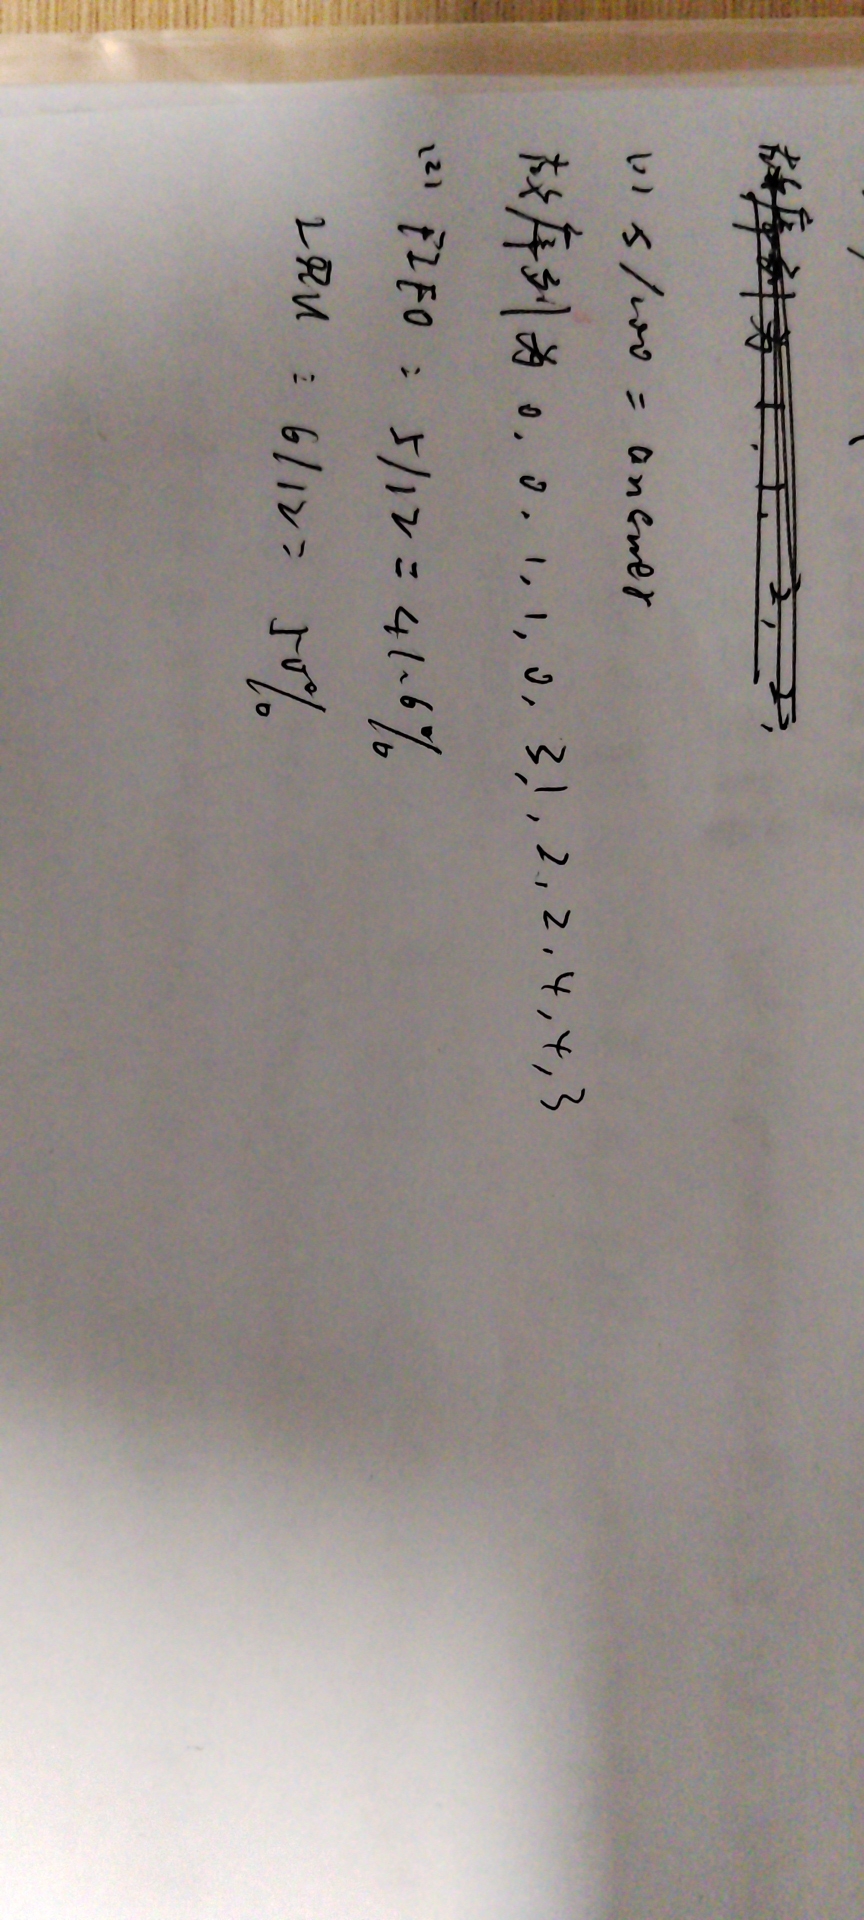 故序列为 1, 1, 2, 2,
(1) s/100 = answer
故序列为 0, 0, 1, 1, 0, 3, 1, 2, 2, 4, 4, 3
(2) FIFO : 5/12 = 41.6%
LRU : 6/12 = 50%